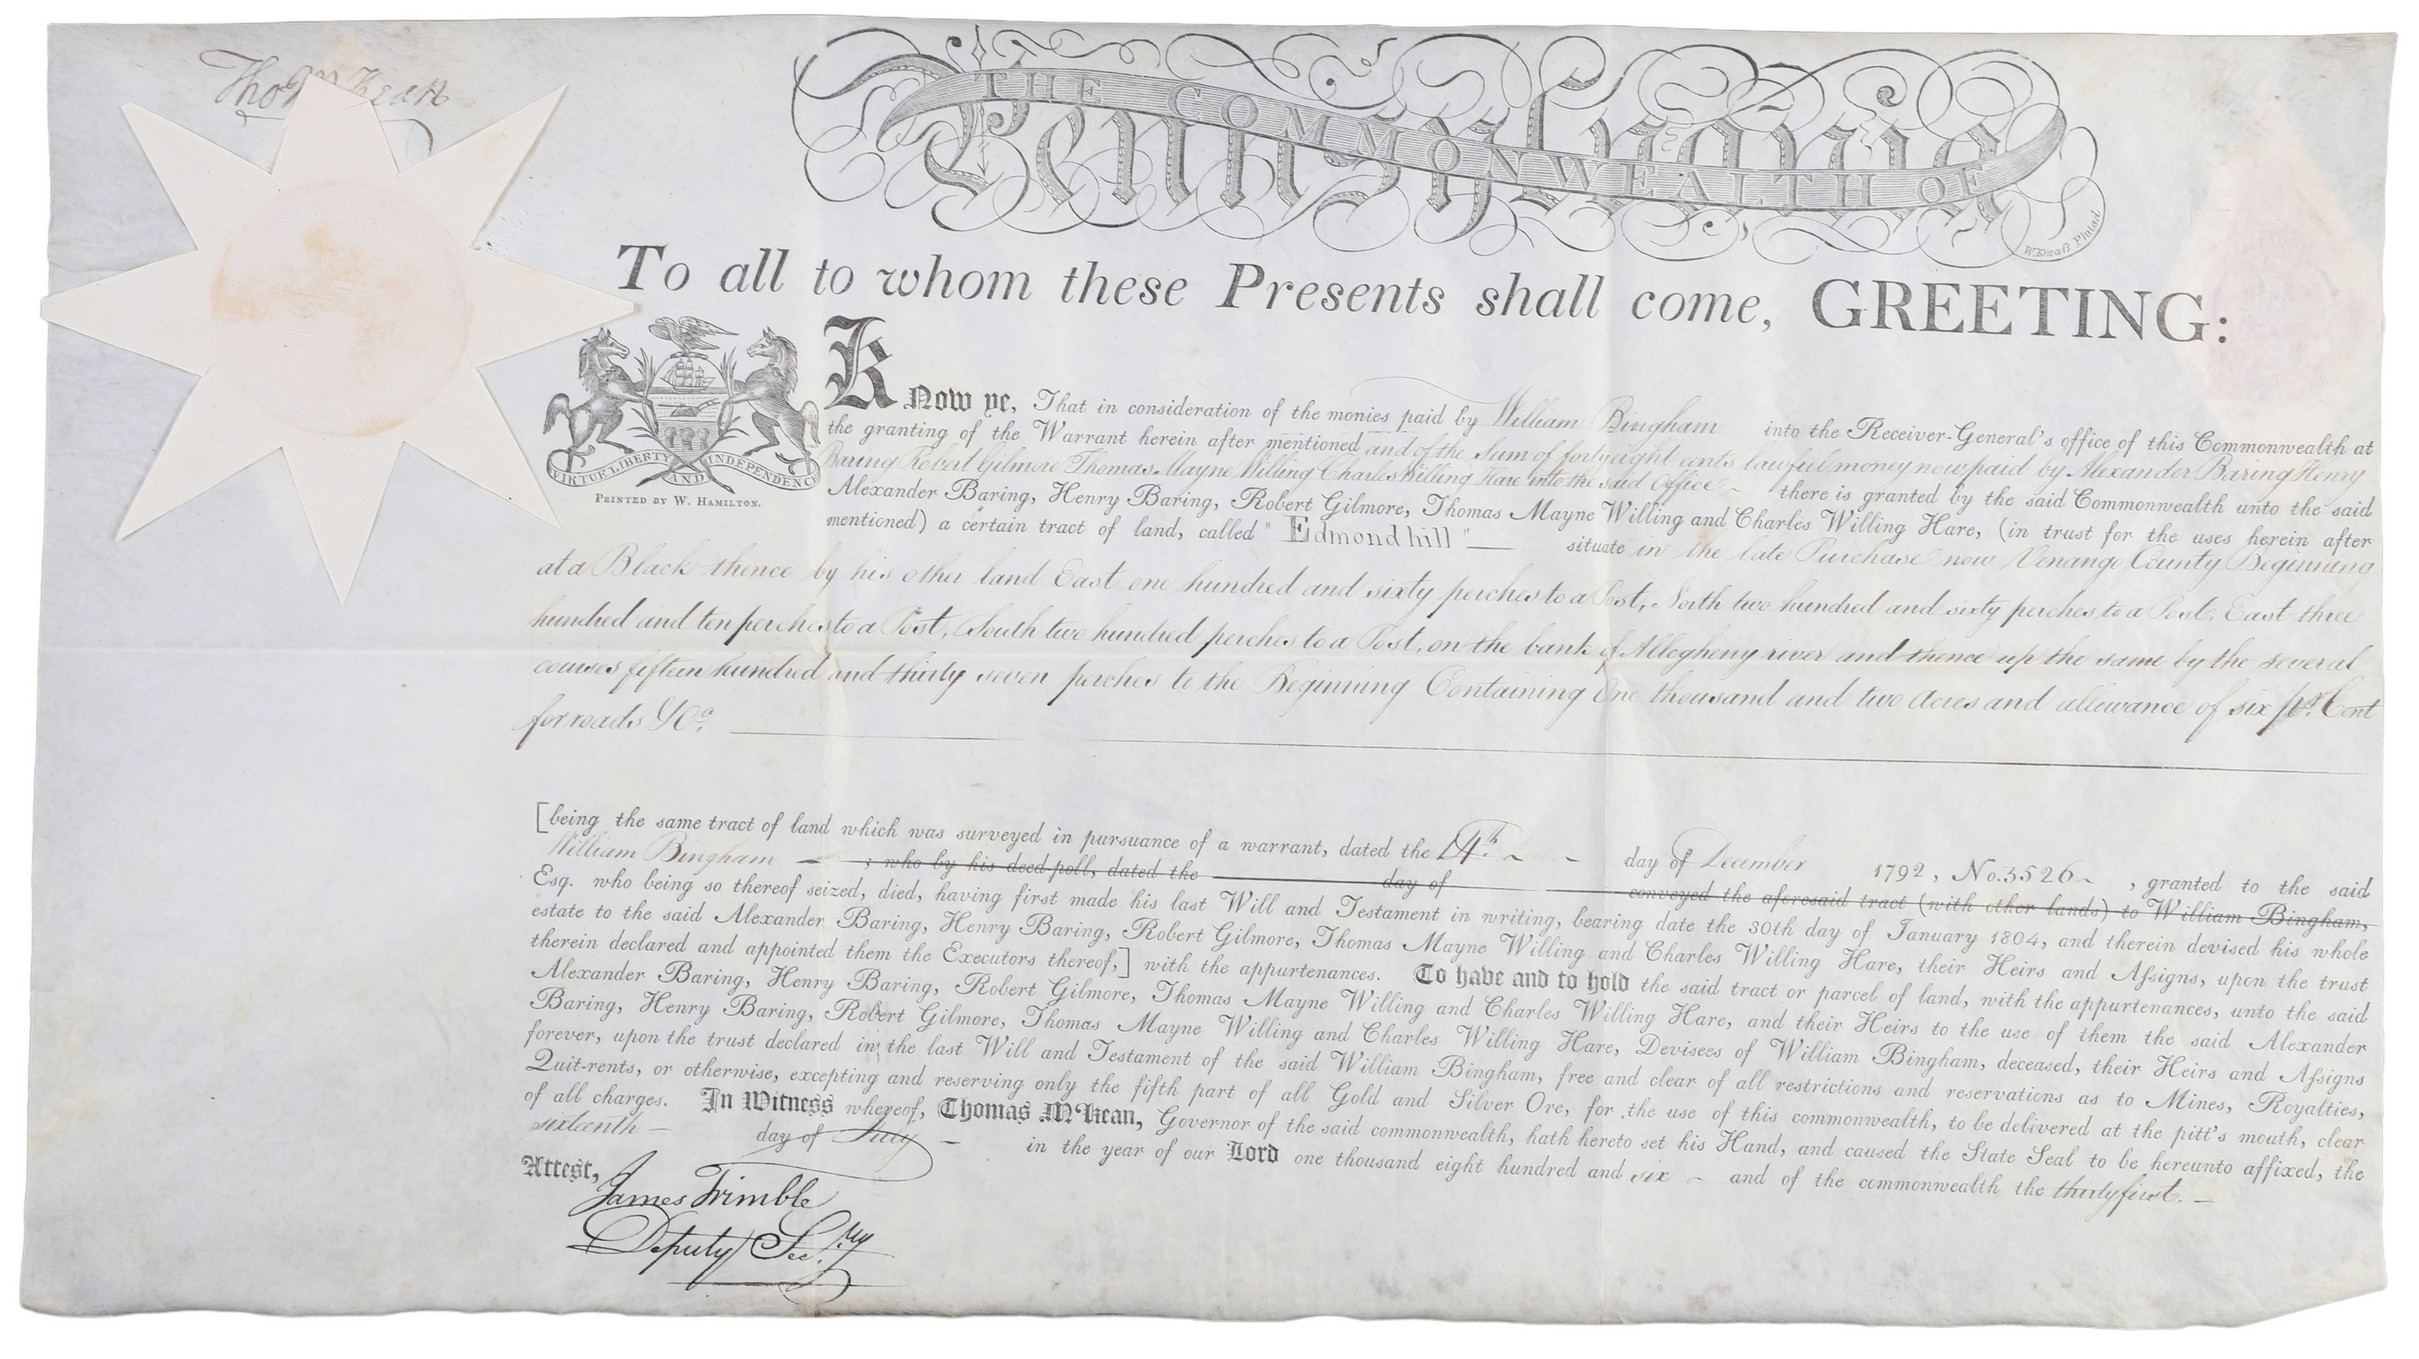 Thos M:Kean
THE COMMONWEALTH OF
Pennsylvania
W. Kneaſs Philad.
To all to whom these Presents shall come, GREETING:
VIRTUE LIBERTY AND INDEPENDENCE
PRINTED BY W. HAMILTON.
KNow ye, That in consideration of the monies paid by William Bingham into the Receiver-General's office of this Commonwealth at
the granting of the Warrant herein after mentioned and of the Sum of forty eight cents lawful money now paid by Alexander Baring Henry
Baring Robert Gilmore Thomas Mayne Willing Charles Willing Hare into the said Office – there is granted by the said Commonwealth unto the said
Alexander Baring, Henry Baring, Robert Gilmore, Thomas Mayne Willing and Charles Willing Hare, (in trust for the uses herein after
mentioned) a certain tract of land, called "Edmond hill" — situate in the late Purchase now Venango County Beginning
at a Black thence by his other land East one hundred and sixty perches to a Post, North two hundred and sixty perches to a Post, East three
hundred and ten perches to a Post, South two hundred perches to a Post, on the bank of Allegheny river and thence up the same by the several
courses fifteen hundred and thirty seven perches to the Beginning Containing One thousand and two Acres and allowance of six pr. Cent
for roads &Ca.
[being the same tract of land which was surveyed in pursuance of a warrant, dated the 14th. day of December 1792, No. 3526 , granted to the said
William Bingham — ; who by his deed-poll, dated the day of conveyed the aforesaid tract (with other lands) to William Bingham,
Esq. who being so thereof seized, died, having first made his last Will and Testament in writing, bearing date the 30th day of January 1804, and therein devised his whole
estate to the said Alexander Baring, Henry Baring, Robert Gilmore, Thomas Mayne Willing and Charles Willing Hare, their Heirs and Aſsigns, upon the trust
therein declared and appointed them the Executors thereof,] with the appurtenances. To have and to hold the said tract or parcel of land, with the appurtenances, unto the said
Alexander Baring, Henry Baring, Robert Gilmore, Thomas Mayne Willing and Charles Willing Hare, and their Heirs to the use of them the said Alexander
Baring, Henry Baring, Robert Gilmore, Thomas Mayne Willing and Charles Willing Hare, Devisees of William Bingham, deceased, their Heirs and Aſsigns
forever, upon the trust declared in the last Will and Testament of the said William Bingham, free and clear of all restrictions and reservations as to Mines, Royalties,
Quit-rents, or otherwise, excepting and reserving only the fifth part of all Gold and Silver Ore, for the use of this commonwealth, to be delivered at the pitt's mouth, clear
of all charges. In Witness whereof, Thomas M'Kean, Governor of the said commonwealth, hath hereto set his Hand, and caused the State Seal to be hereunto affixed, the
sixteenth — day of July – in the year of our Lord one thousand eight hundred and six – and of the commonwealth the thirty first. —
Attest,
James Trimble
Deputy Secry